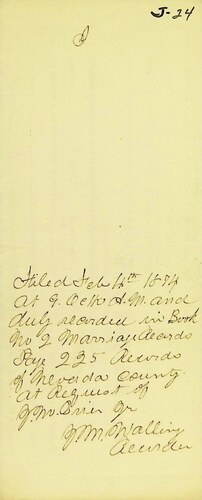 J-24
Filed Feb 14th 1874
at 9. Oclk A.M. and
duly recorded in Book
No 2 Marriage Records
Page 225 Records
of Nevada County
at Request of
Jr
J. M. Walling
Recorder